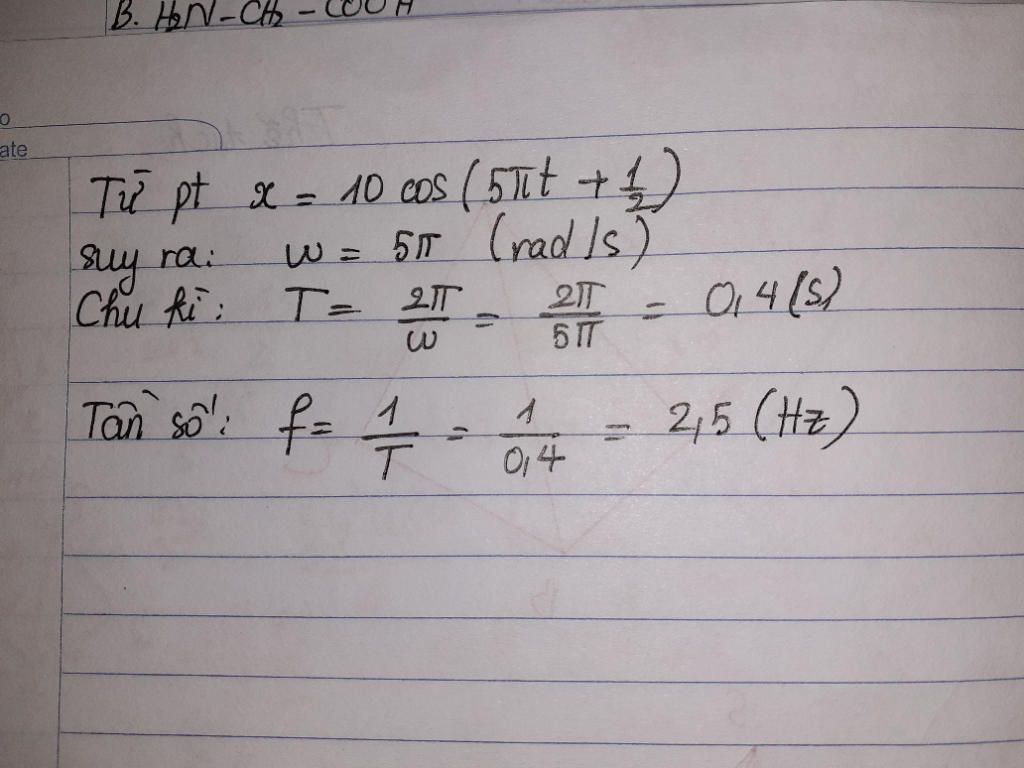 B. H₂N-CH₂-COOH
o
ate
Từ pt x = 10 cos (5πt + 1/2)
suy ra: ω = 5π (rad/s)
Chu kì: T = 2π/ω = 2π/5π = 0,4 (s)
Tần số: f = 1/T = 1/0,4 = 2,5 (Hz)